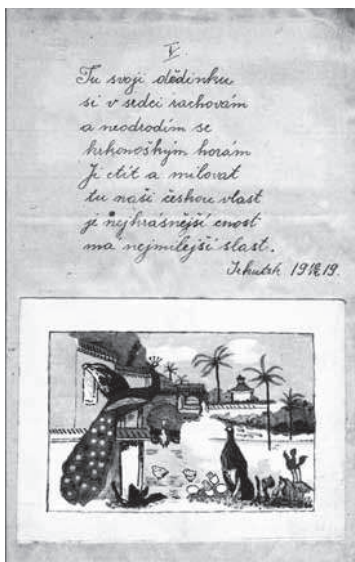 V.
Tu svoji dědinku
si v srdci zachovám
a neodrodím se
krkonoškým horám
Ji ctít a milovat
tu naši českou vlast
je nejkrásnější cnost
má nejmilejší slast.
Irkutsk